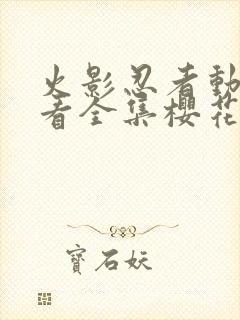 火影忍者動
看全集櫻花
寶石妖